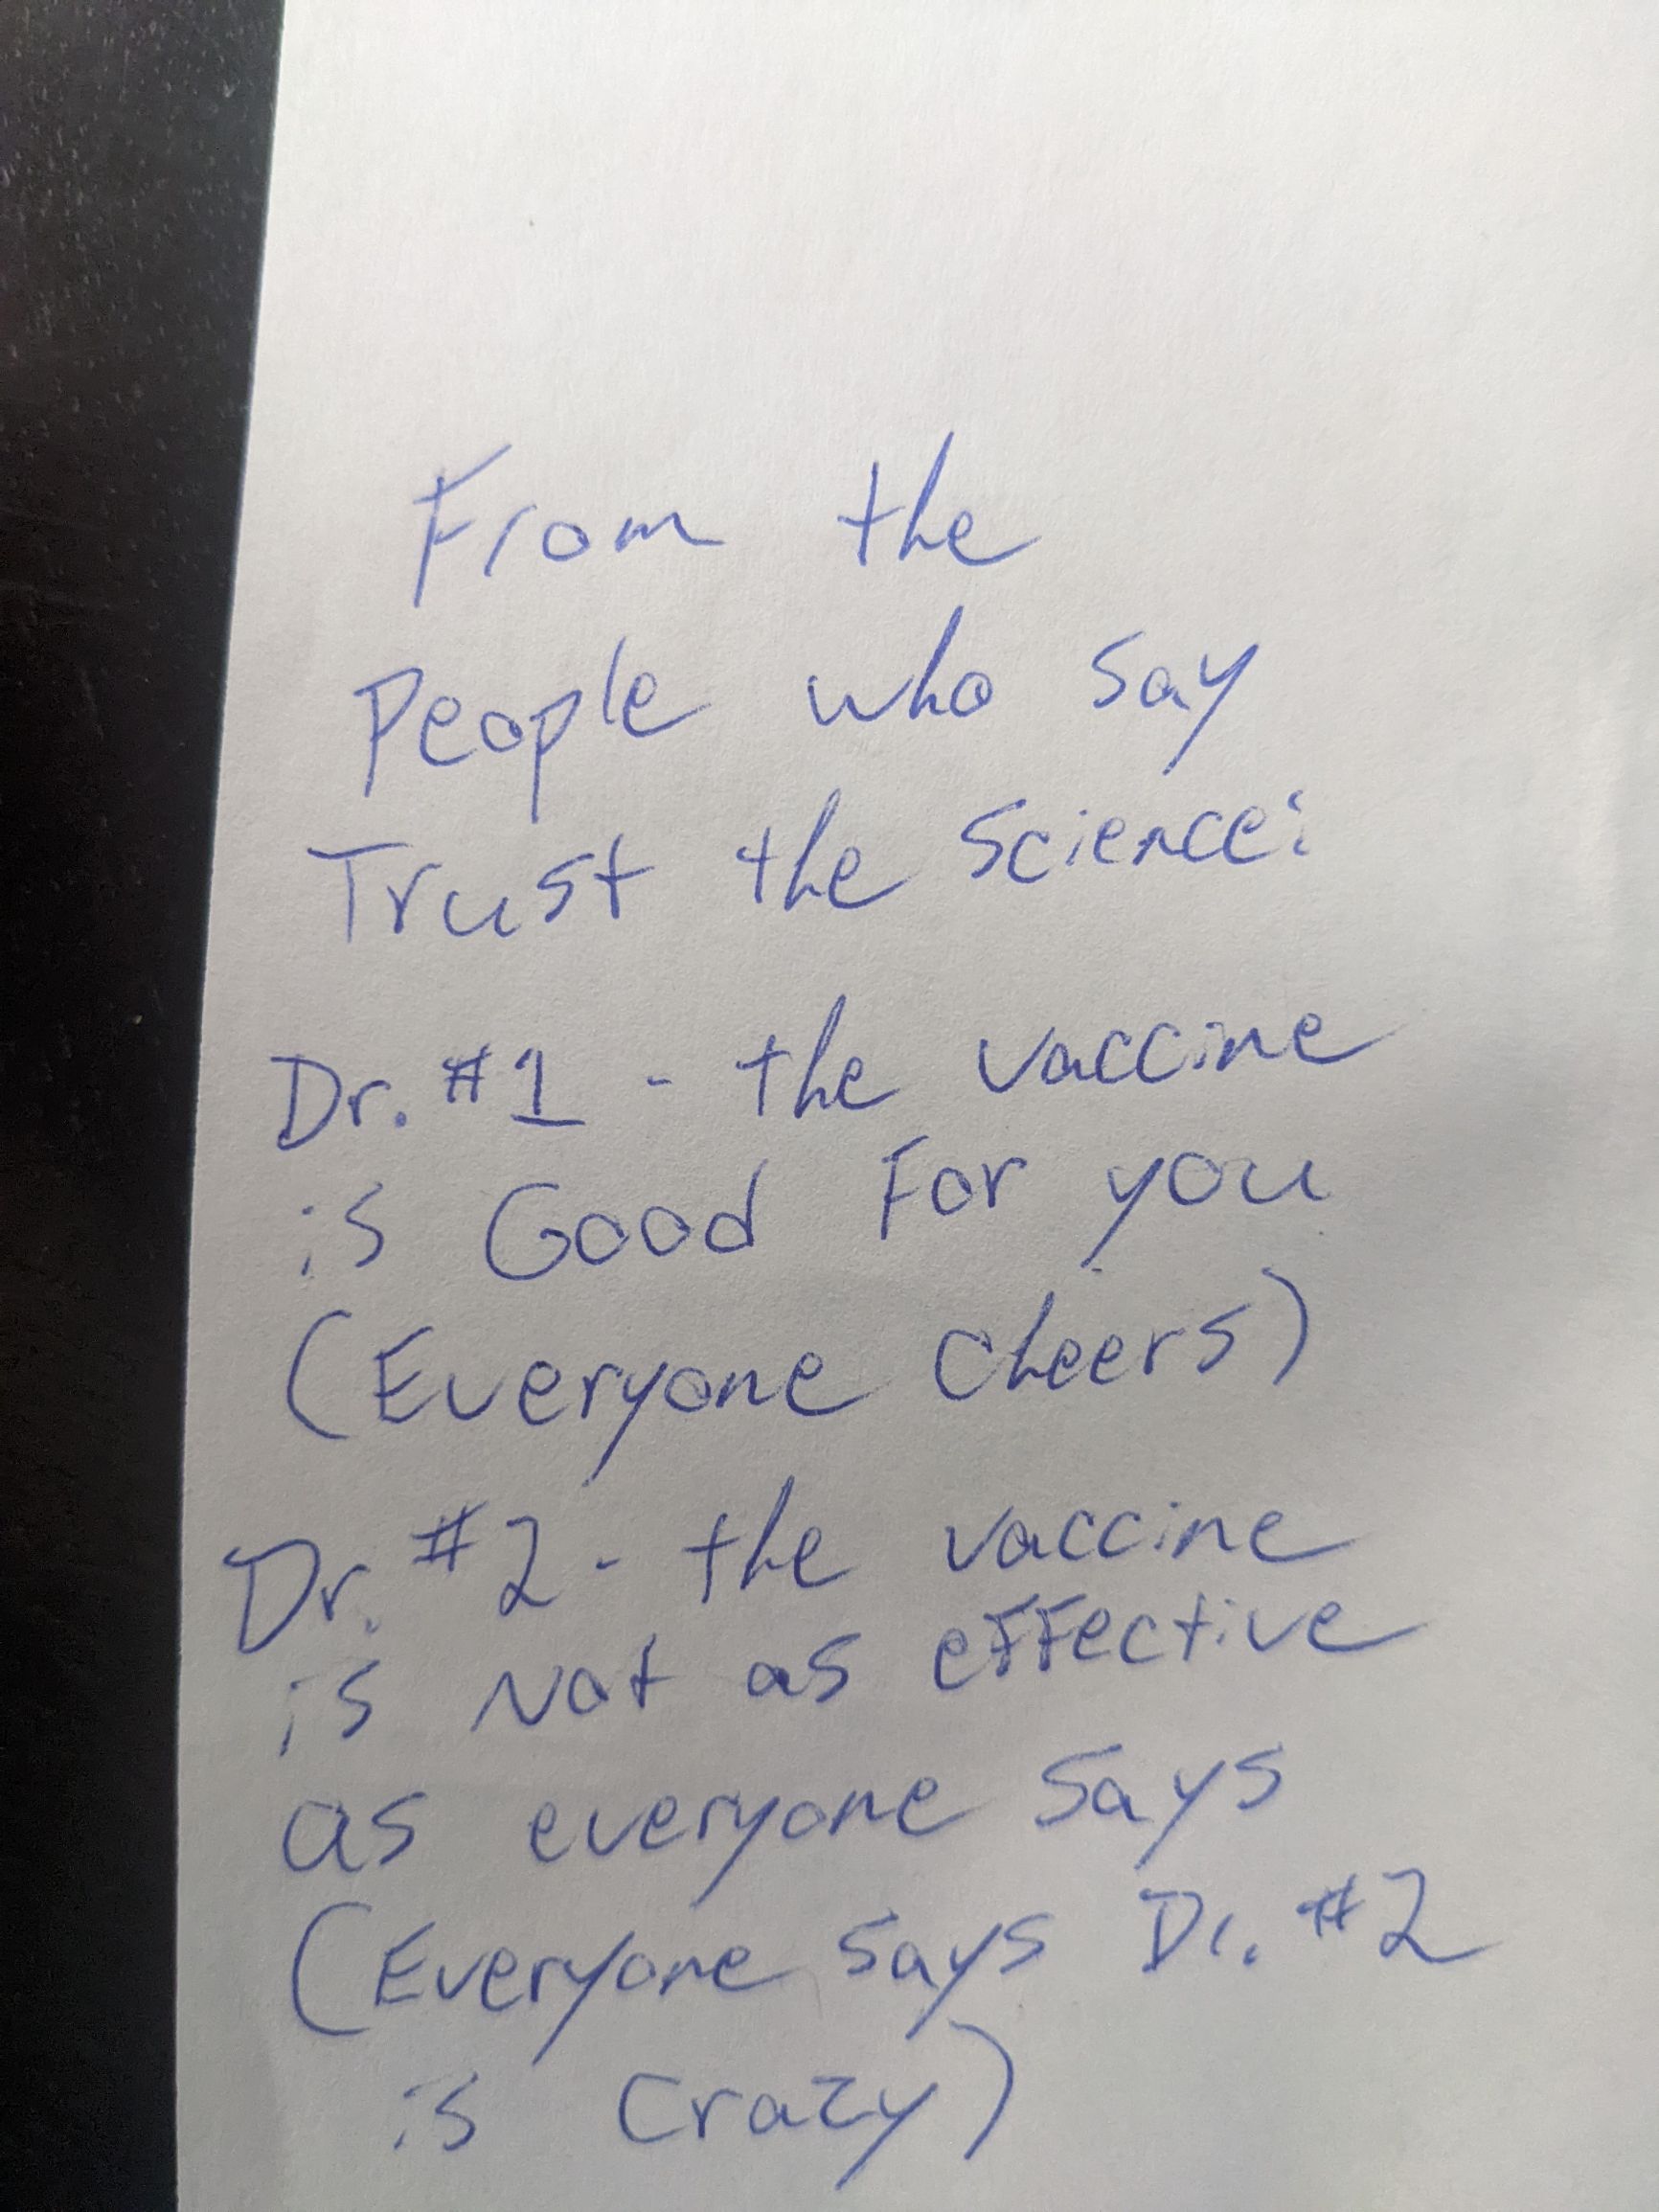 From the
People who say
Trust the science:
Dr. #1 - the vaccine
is Good For you
(Everyone cheers)
Dr. #2 - the vaccine
is Not as effective
as everyone says
(Everyone says Dr. #2
is Crazy)